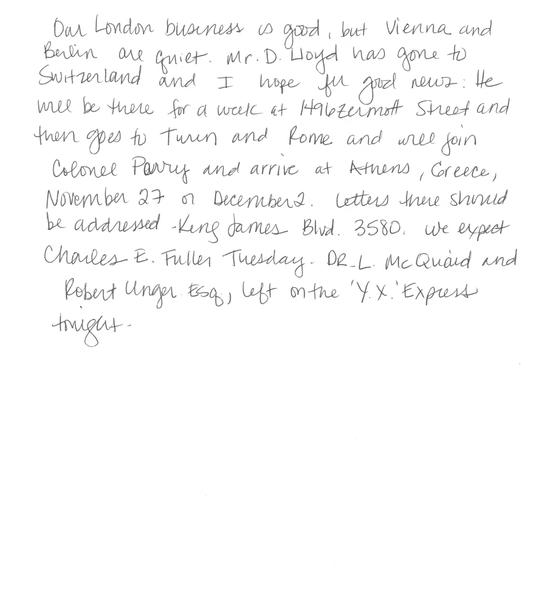 Our London business is good, but Vienna and
Berlin are quiet. Mr. D. Lloyd has gone to
Switzerland and I hope for good news. He
will be there for a week at 1496 Zermott Street and
then goes to Turin and Rome and will join
Colonel Parry and arrive at Athens, Greece,
November 27 or December 2. Letters there should
be addressed -King James Blvd. 3580. We expect
Charles E. Fuller Tuesday. DR. L. McQuaid and
Robert Unger Esq, left on the 'Y.X.' Express
tonight.